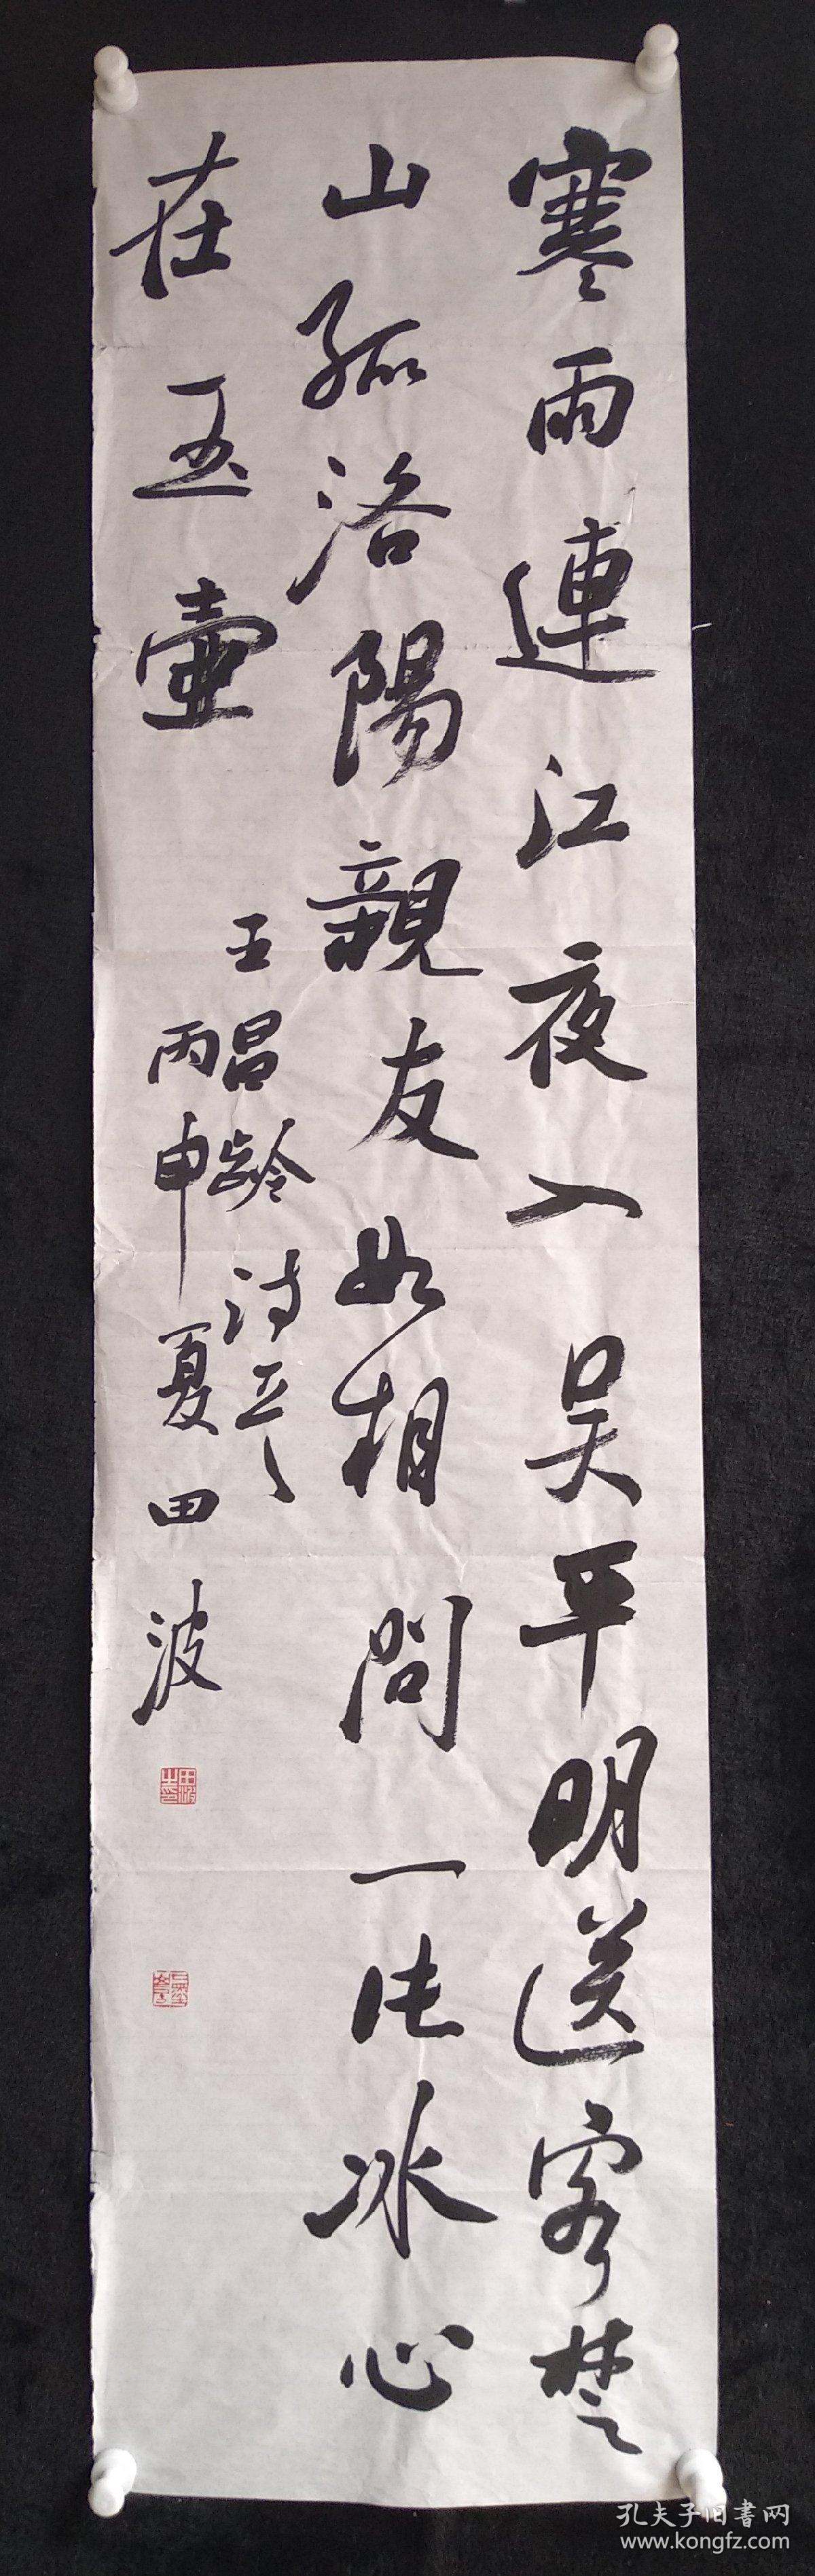 寒雨連江夜入吴平明送客楚
山孤洛陽親友如相問一片冰心
在玉壷
王昌齡诗一首
丙申夏田波
孔夫子旧書网
www.kongfz.com